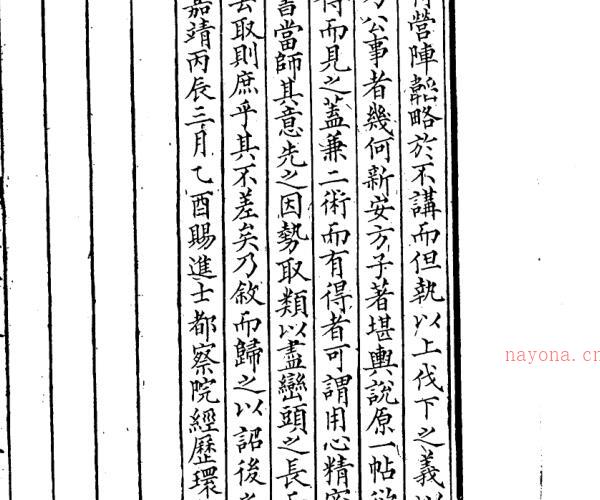 營陣韜略於不講而但執以上伐下之義以
公事者幾何新安方子著堪輿說原一帖
得而見之蓋兼二術而有得者可謂用心精密
書當師其意先之因勢取類以盡巒頭之長
去取則庶乎其不差矣乃敘而歸之以詔後
嘉靖丙辰三月乙酉賜進士都察院經歷環
nayona.cn